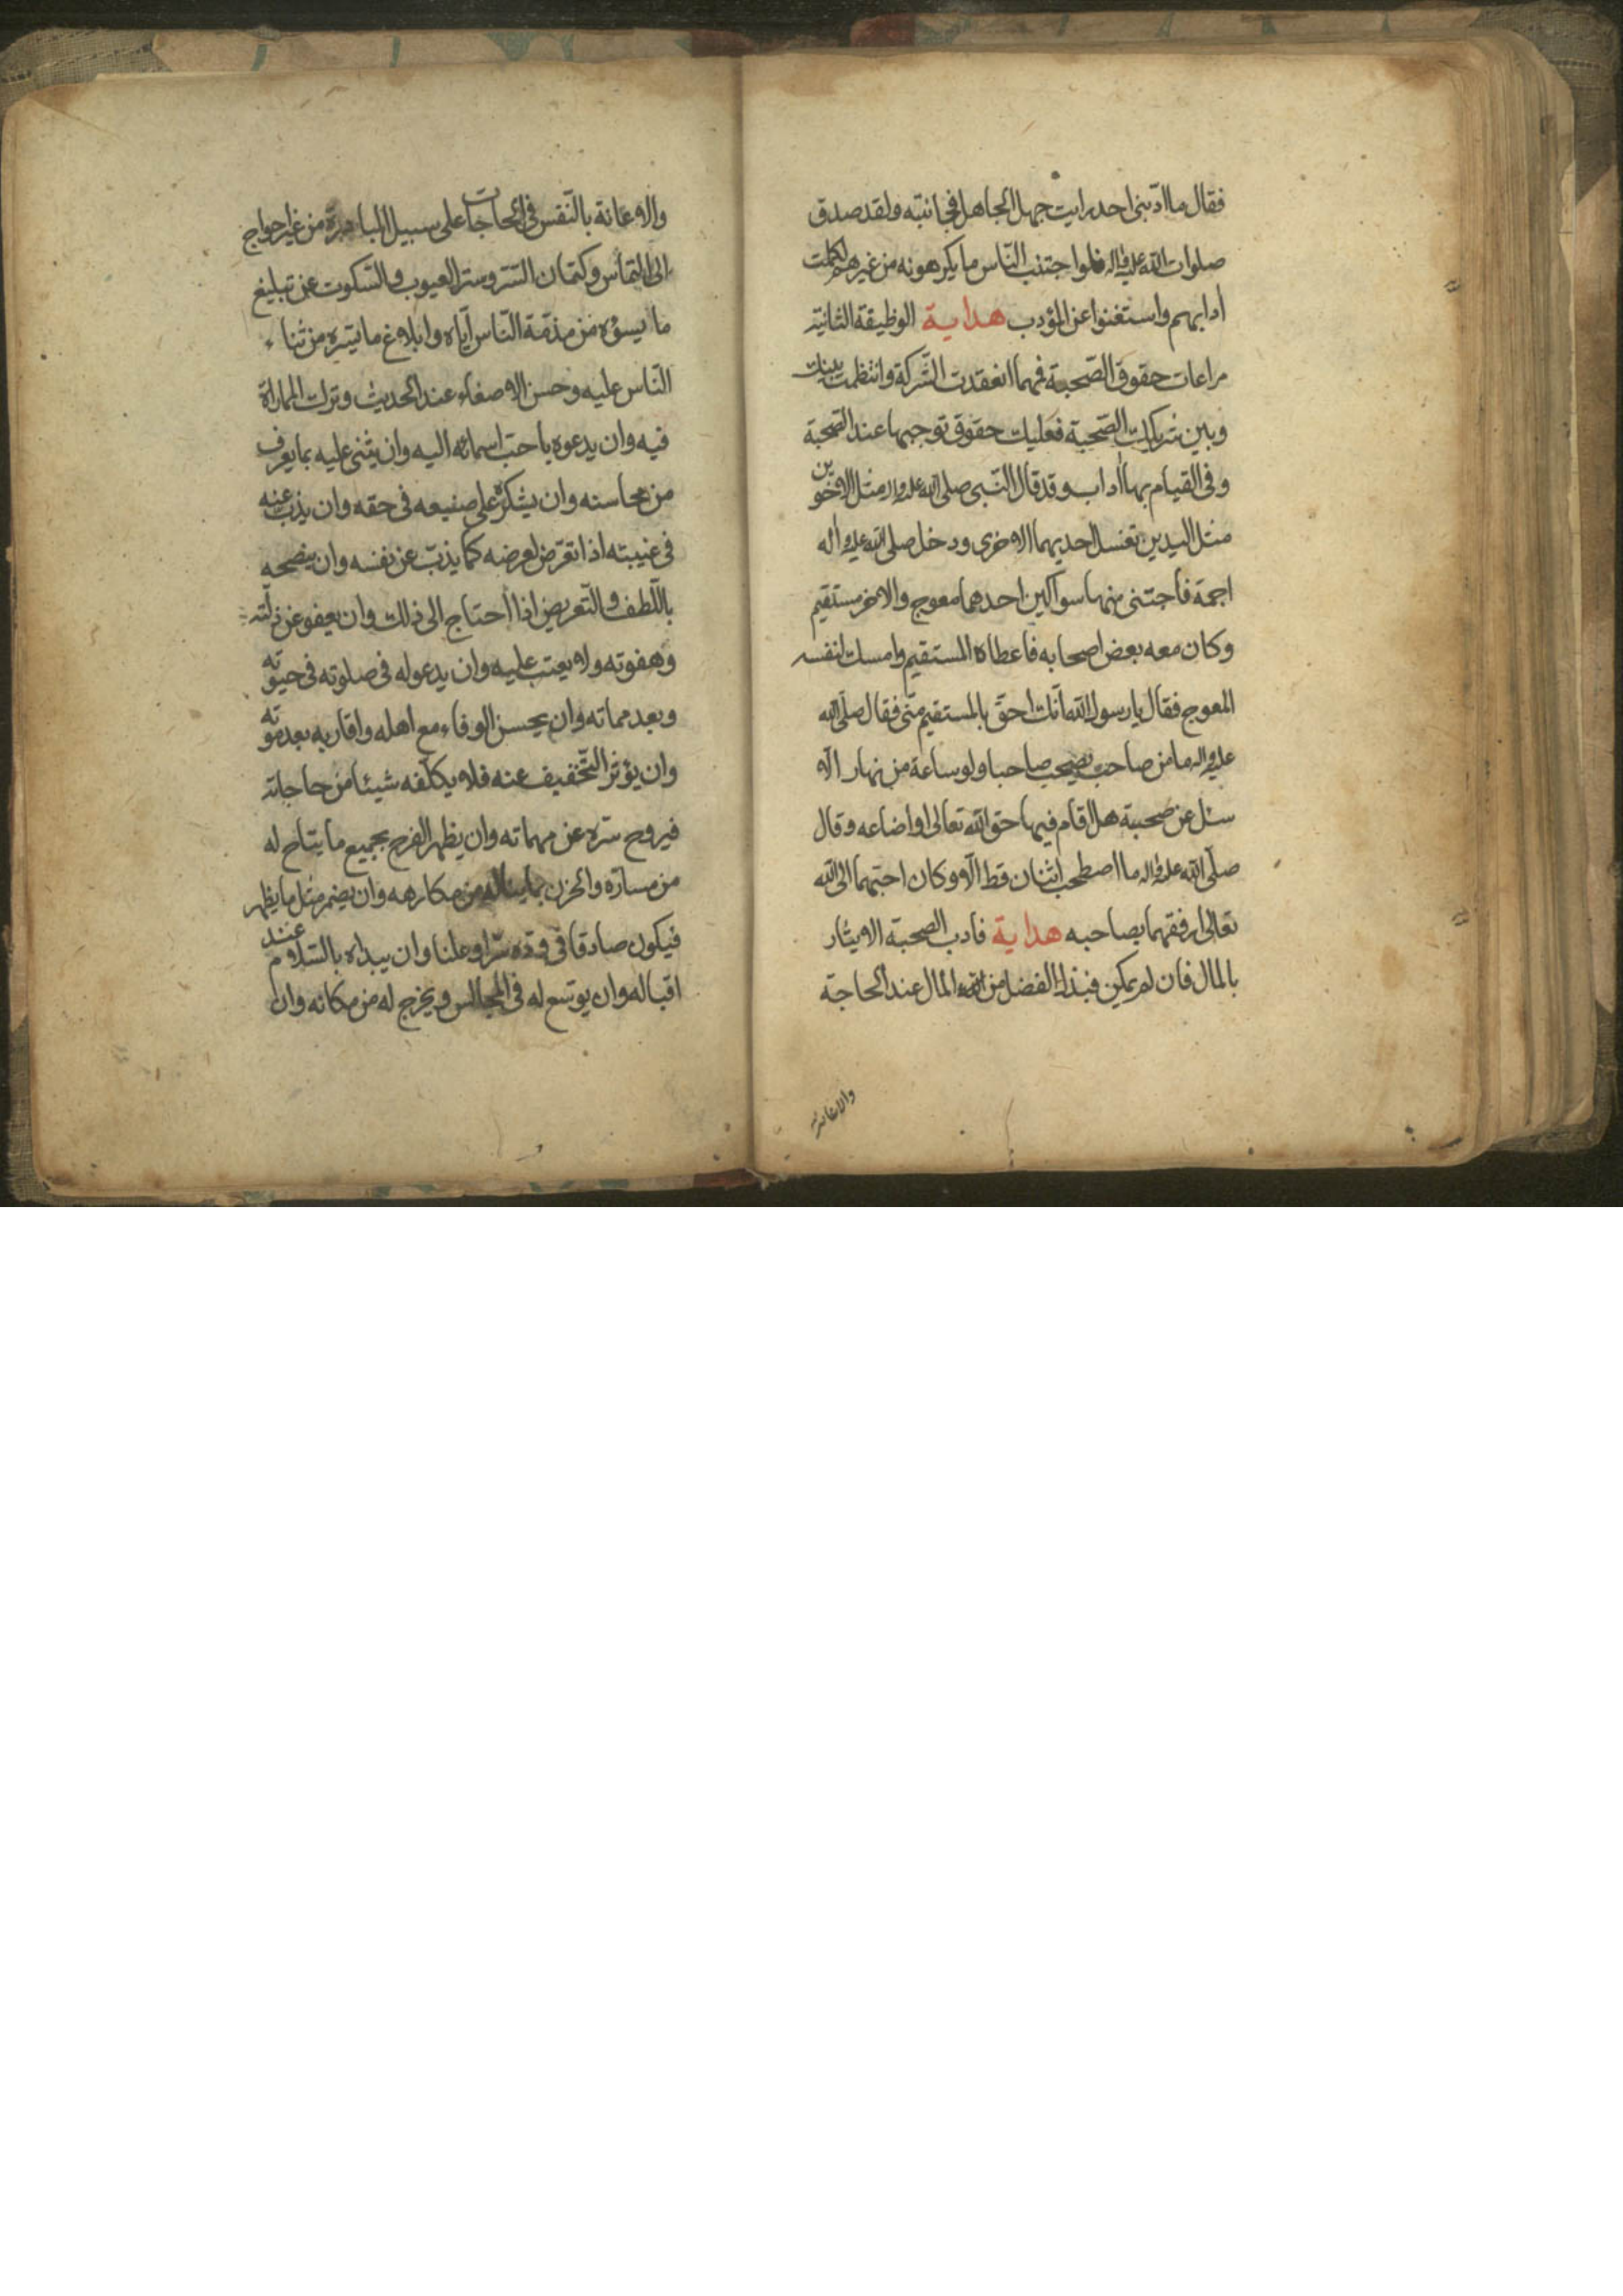 فقال ما ادّبنى احد رايت جهل الجاهل فجانبته ولقد صدق
صلوات الله عليه واله فلو اجتنب الناس ما يكرهونه من غيرهم لكملت
ادابهم واستغنوا عن المؤدب هداية الوظيفة الثانية
مراعات حقوق الصحبة فمهما انعقدت الشركة وانتظمت بينك
وبين شريكك الصحبة فعليك حقوق توجبها عند الصحبة
وفى القيام بها اداب وقد قال النبى صلى الله عليه واله مثل الاخوين
مثل اليدين تغسل احديهما الاخرى ودخل صلى الله عليه واله
اجمة فاجتنى منها سواكين احدهما معوج والاخر مستقيم
وكان معه بعض اصحابه فاعطاه المستقيم وامسك لنفسه
المعوج فقال يا رسول الله انك احق بالمستقيم منّى فقال صلى الله
عليه واله ما من صاحب يصحب صاحبا ولو ساعة من نهار الّا
سئل عن صحبة هل اقام فيها حق الله تعالى او اضاعه وقال
صلّى الله عليه واله ما اصطحب اثنان قط الّا وكان احبّهما الى الله
تعالى ارفقهما بصاحبه هداية فادب الصحبة الايثار
بالمال فان لم يمكن فبذل الفضل من المال عند الحاجة
والاعانة
والاعانة بالنّفس فى الحاجات على سبيل المبادرة من غير احواج
الى التماس وكتمان السّر وستر العيوب والسّكوت عن تبليغ
ما يسؤه من مذمّة النّاس ايّاه وابلاغ ما يسّره من ثناء
النّاس عليه وحسن الاصغاء عند الحديث وترك المماراة
فيه وان يدعوه باحبّ اسمائه اليه وان يثنى عليه بما يعرف
من محاسنه وان يشكره على صنيعه فى حقه وان يذب عنه
فى غيبته اذا تعرّض لعرضه كما يذبّ عن نفسه وان ينصحه
باللّطف والتّعريض اذا احتاج الى ذلك وان يعفو عن زلّته
وهفوته ولا يعتب عليه وان يدعو له فى صلوته فى حيوته
وبعد مماته وان يحسن الوفاء مع اهله واقاربه بعد موته
وان يؤثر التّخفيف عنه فلا يكلّفه شيئا من حاجاته
فيروح سّره عن مهماته وان يظهر الفرح بجميع ما يتاح له
من مسارّه والحزن بما يناله من مكارهه وان يضمر مثل ما يظهر
فيكون صادقا فى ودّه سّرا وعلنا وان يبداه بالسّلام عند
اقباله وان يوسّع له فى المجالس ويخرج له من مكانه وان